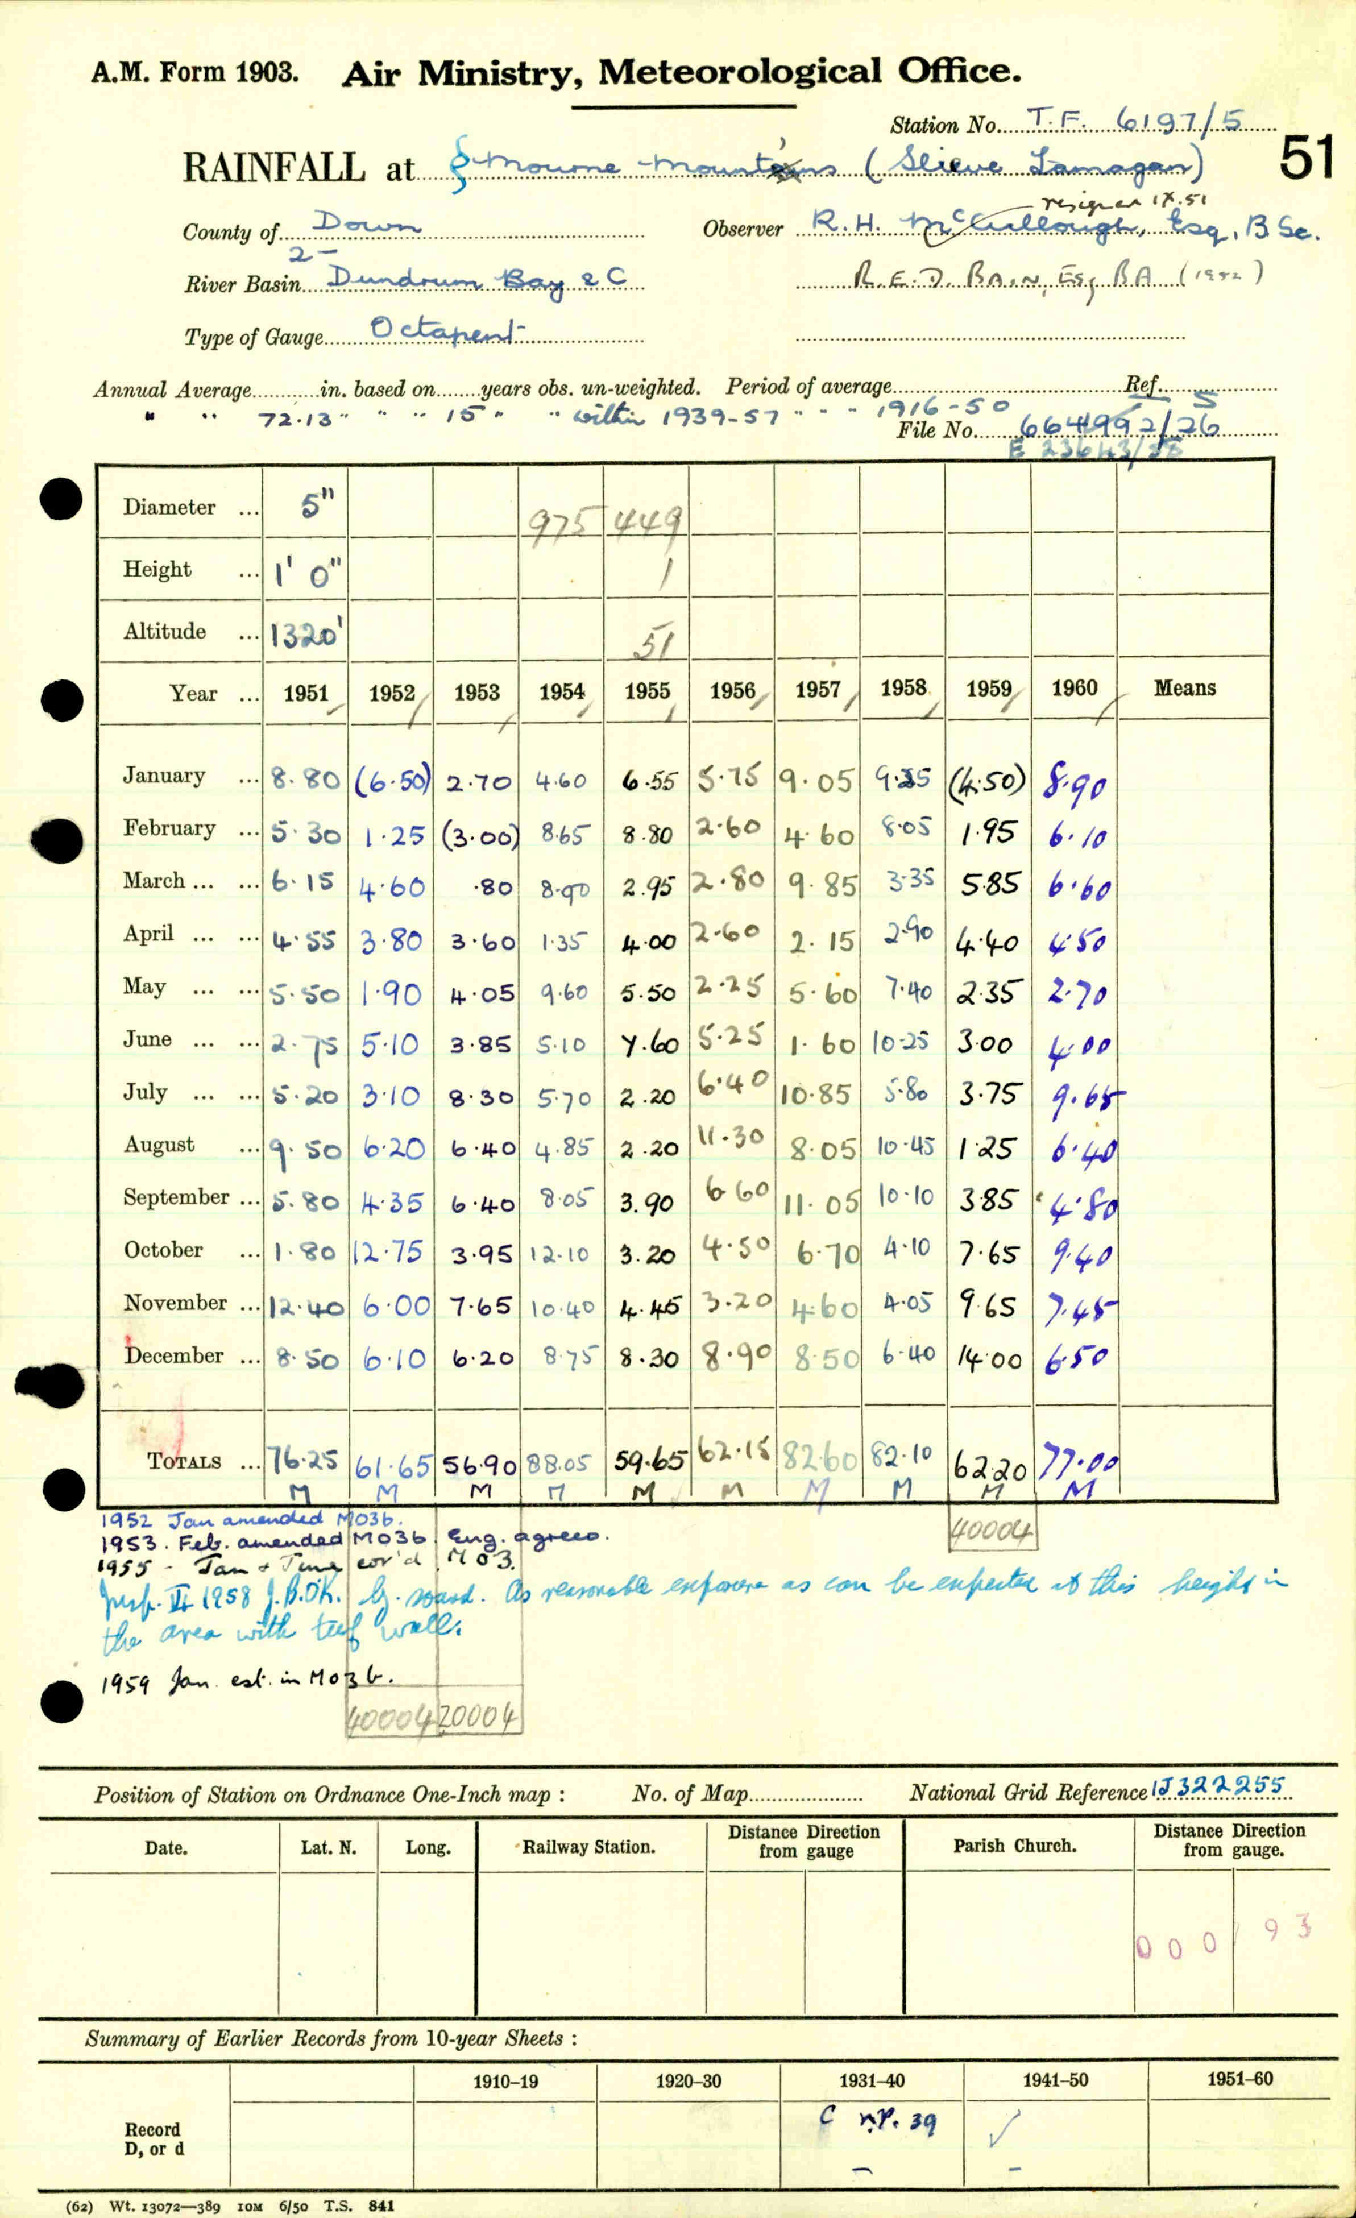 A.M. Form 1903. Air Ministry, Meteorological Office.
Station No. T.F. 6197/5
RAINFALL at Mourne Mountains (Slieve Lamagan) 51
resigned IX.51
County of Down Observer R.H. McCullough, Esq, B Sc.
2-
River Basin Dundrum Bay & C R.E.D. BAIN, Esq BA (1952)
Type of Gauge Octapent
Annual Average in. based on years obs. un-weighted. Period of average Ref.
" " 72.13 " " " 15 " " within 1939-57 " " - 1916-50 S
File No. 664992/26
E 23643/58
Diameter ... 5" 975 449
Height ... 1' 0" 1
Altitude ... 1320' 51
Year ... 1951 1952 1953 1954 1955 1956 1957 1958 1959 1960 Means
January ... 8.80 (6.50) 2.70 4.60 6.55 5.75 9.05 9.35 (4.50) 8.90
February ... 5.30 1.25 (3.00) 8.65 8.80 2.60 4.60 8.05 1.95 6.10
March ... ... 6.15 4.60 .80 8.90 2.95 2.80 9.85 3.35 5.85 6.60
April ... ... 4.55 3.80 3.60 1.35 4.00 2.60 2.15 2.90 4.40 4.50
May ... ... 5.50 1.90 4.05 9.60 5.50 2.25 5.60 7.40 2.35 2.70
June ... ... 2.75 5.10 3.85 5.10 7.60 5.25 1.60 10.25 3.00 4.00
July ... ... 5.20 3.10 8.30 5.70 2.20 6.40 10.85 5.80 3.75 9.65
August ... 9.50 6.20 6.40 4.85 2.20 11.30 8.05 10.45 1.25 6.40
September ... 5.80 4.35 6.40 8.05 3.90 6.60 11.05 10.10 3.85 4.80
October ... 1.80 12.75 3.95 12.10 3.20 4.50 6.70 4.10 7.65 9.40
November ... 12.40 6.00 7.65 10.40 4.45 3.20 4.60 4.05 9.65 7.45
December ... 8.50 6.10 6.20 8.75 8.30 8.90 8.50 6.40 14.00 6.50
TOTALS ... 76.25 61.65 56.90 88.05 59.65 62.15 82.60 82.10 62.20 77.00
M M M M M M M M M M
1952 Jan amended M03b. 40004
1953. Feb. amended M03b. Eng. agrees.
1955 - Jan & June cor'd M03.
Insp. VI 1958 G. round. As reasonable exposure as can be expected at this height in
the area with turf wall.
1959 Jan. est. in M03b.
40004 20004
Position of Station on Ordnance One-Inch map : No. of Map National Grid Reference IJ322255
Date. Lat. N. Long. Railway Station. Distance from Direction gauge Parish Church. Distance from Direction gauge.
000 93
Summary of Earlier Records from 10-year Sheets :
1910–19 1920–30 1931–40 1941–50 1951–60
Record D, or d C n.p. 39 ✓
– –
(62) Wt. 13072—389 10M 6/50 T.S. 841